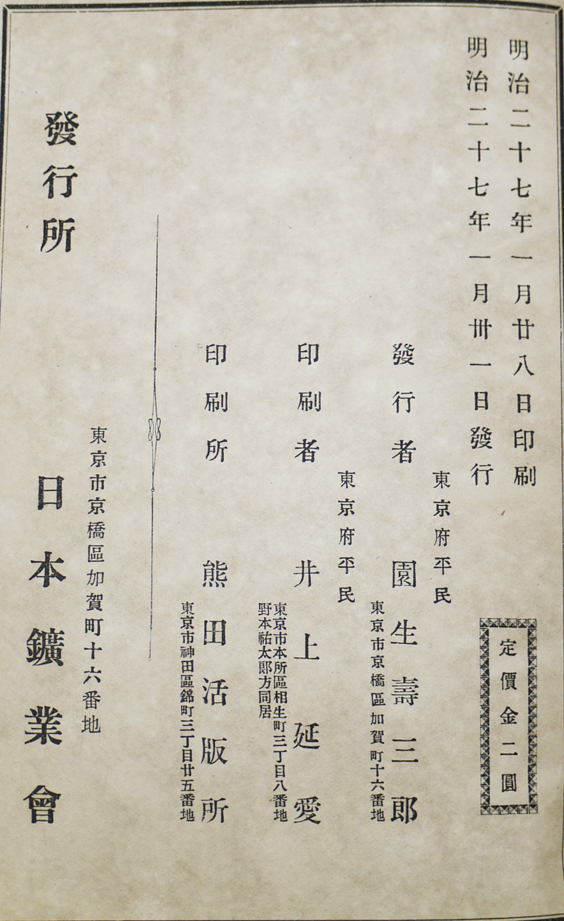 明治二十七年一月廿八日印刷
明治二十七年一月卅一日發行
定價金二圓
東京府平民
發行者 園生壽三郎
東京市京橋區加賀町十六番地
東京府平民
印刷者 井上延愛
東京市本所區相生町三丁目八番地
野本祐太郎方同居
印刷所 熊田活版所
東京市神田區錦町三丁目廿五番地
東京市京橋區加賀町十六番地
發行所 日本鑛業會